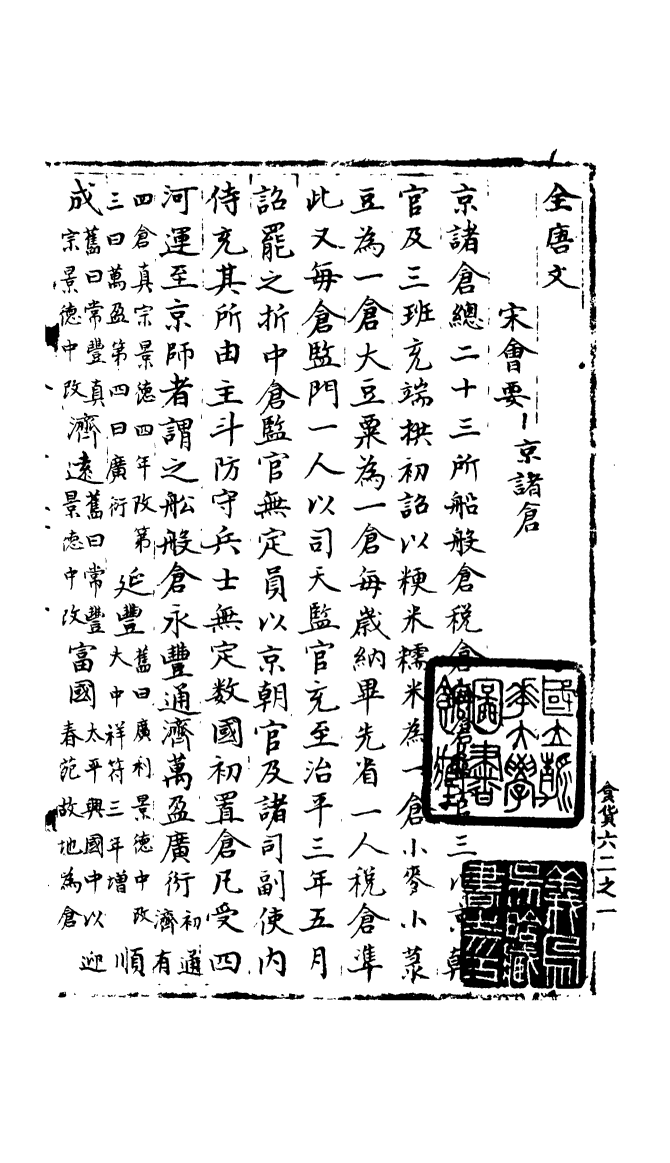 食貨六二之一
全唐文
宋會要 京諸倉
京諸倉總二十三所船般倉税倉三朝
官及三班充端拱初詔以粳米糯米為一倉小麥小菉
豆為一倉大豆粟為一倉每歲納畢先省一人税倉準
此又每倉監門一人以司天監官充至治平三年五月
詔罷之折中倉監官無定員以京朝官及諸司副使内
侍充其所由主斗防守兵士無定數國初置倉凡受四
河運至京師者謂之舩般倉永豐通濟萬盈廣衍初通濟有
四倉真宗景德四年改第三曰萬盈第四曰廣衍延豐舊曰廣利景德中改大中祥符三年增順
成舊曰常豐真宗景德中改濟遠舊曰常豐景德中改富國太平興國中以春苑故地為倉迎